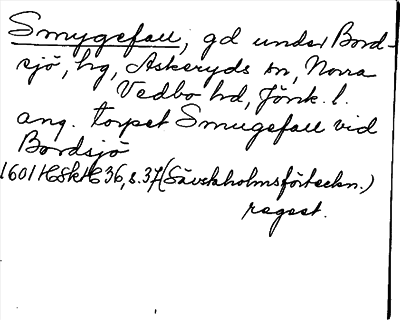 Smygefall, gd under Bord-
sjö, hg, Askeryds sn, Norra
Vedbo hd, Jönk. l.
ang. torpet Smugefall vid
Bordsjö
1601 HSkH 36, s. 37 (Sävekholmsförteckn.)
regest.